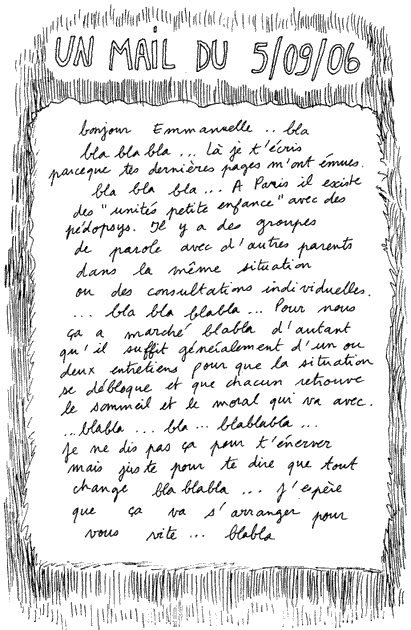 UN MAIL DU 5/09/06
bonjour Emmanuelle .. bla
bla bla bla ... Là je t'écris
parceque tes dernières pages m'ont émues.
bla bla bla ... A Paris il existe
des "unités petite enfance" avec des
pédopsys. Il y a des groupes
de parole avec d'autres parents
dans la même situation
ou des consultations individuelles.
... bla bla blabla ... Pour nous
ça a marché blabla d'autant
qu'il suffit généralement d'un ou
deux entretiens pour que la situation
se débloque et que chacun retrouve
le sommeil et le moral qui va avec.
... blabla ... bla ... blablabla ...
Je ne dis pas ça pour t'énerver
mais juste pour te dire que tout
change bla blabla ... J'espère
que ça va s'arranger pour
vous vite ... blabla